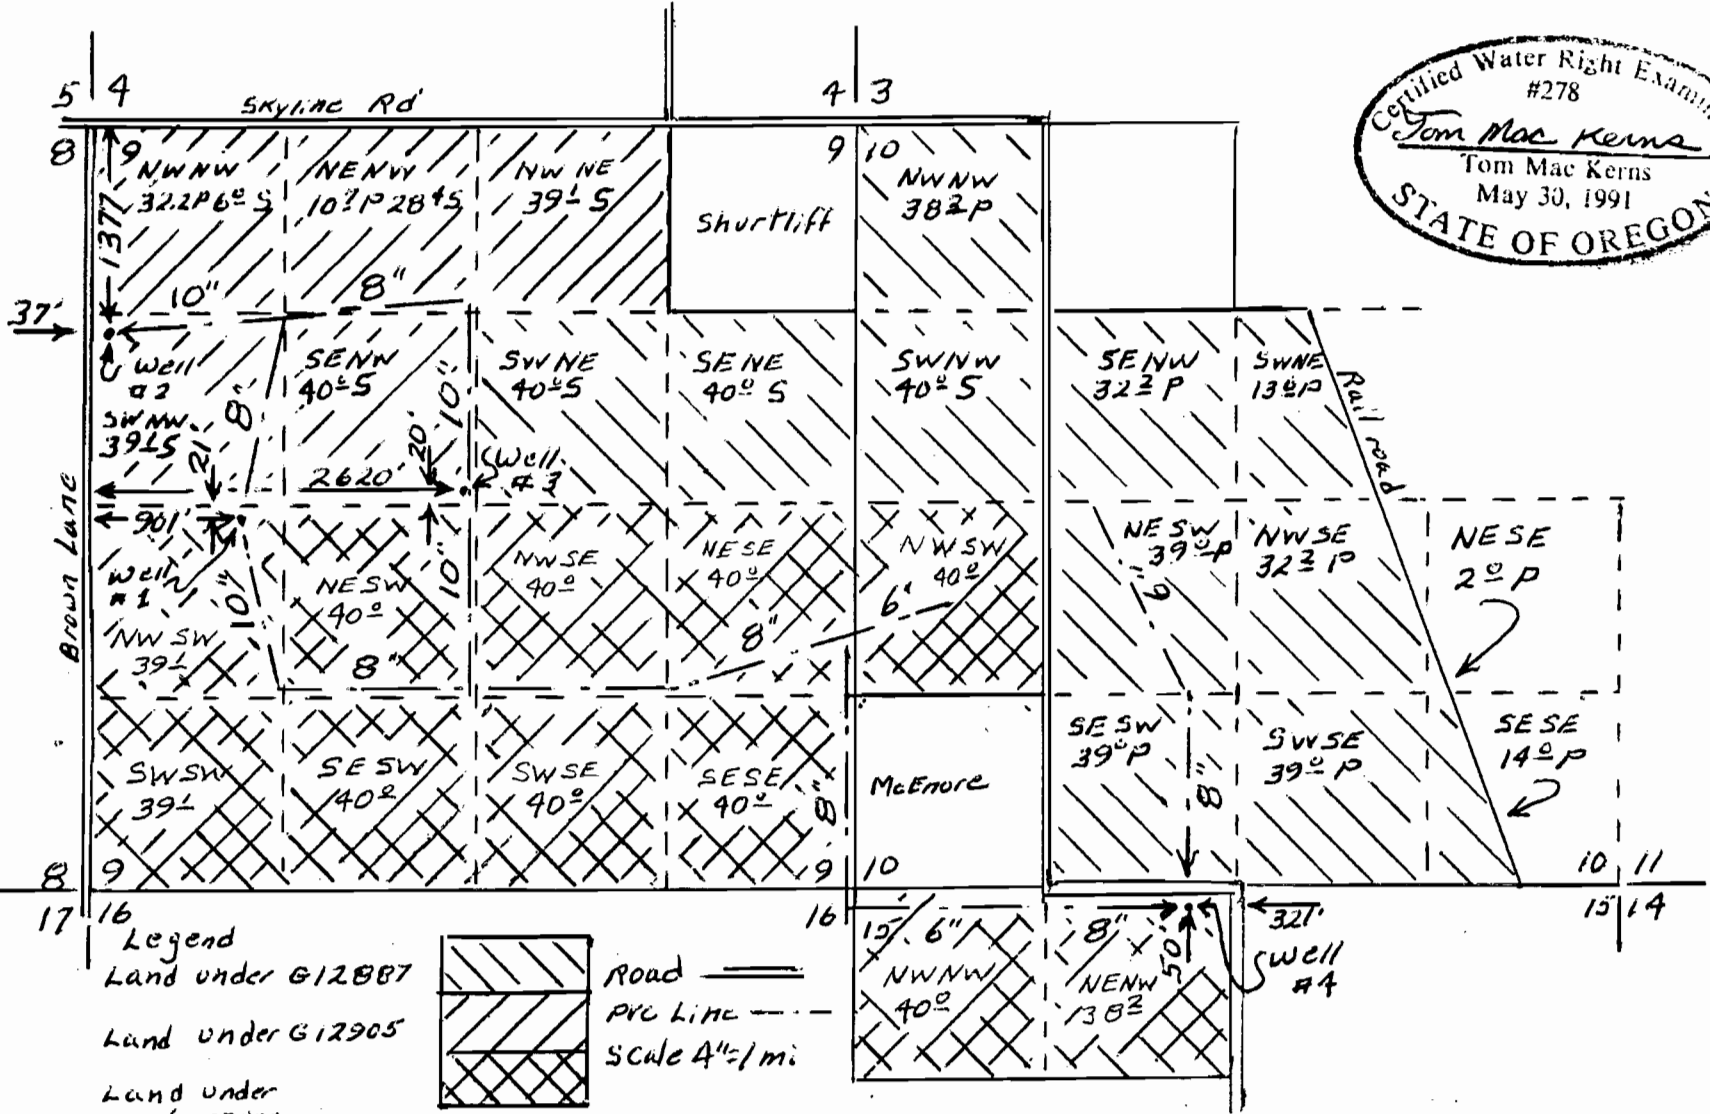 5 4
4 3
Skyline Rd
Certified Water Right
#278
Tom Mac Kerns
Tom Mac Kerns
May 30, 1991
STATE OF OREGON
8 9
9 10
NWNW
32.2P 6º S
NENW
10²P 28⁴S
NW NE
39¹ S
Shurtliff
NWNW
38² P
1377'
10"
8"
37'
Well
#2
SWNW
39¹S
8"
21'
SENW
40º S
10"
20'
SWNE
40º S
SENE
40º S
SWNW
40º S
SENW
32² P
SWNE
13º P
Rail road
2620'
Well
#3
Brown Lane
901'
Well
#1
10"
NW SW
39¹
NESW
40º
10"
8"
NWSE
40º
NESE
40º
8"
NWSW
40º
6'
NE SW
39º P
6"
NWSE
32² P
NESE
2º P
SWSW
39¹
SE SW
40º
SWSE
40º
SESE
40º
8"
McEnore
SE SW
39º P
8"
SWSE
39º P
SESE
14º P
8 9
9 10
10 11
17 16
16 15
15 14
6"
8"
50'
321'
Well
#4
NWNW
40º
NENW
38²
Legend
Land under G12887
Land under G12905
Land under
Road
PVC Line
Scale 4"=1 mi